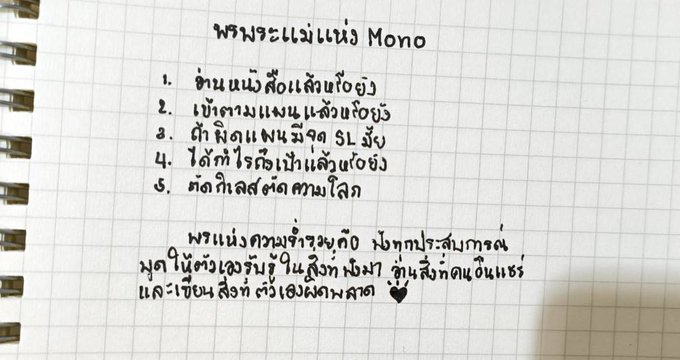 พรพระแม่แห่ง Mono
1. อ่านหนังสือแล้วหรือยัง
2. เข้าตามแผนแล้วหรือยัง
3. ถ้าผิดแผนมีจุด SL มั้ย
4. ได้กำไรถึงเป้าแล้วหรือยัง
5. ตัดกิเลสตัดความโลภ
พรแห่งความร่ำรวยคือ ฟังทุกประสบการณ์
พูดให้ตัวเองรับรู้ในสิ่งที่ฟังมา อ่านสิ่งที่คนอื่นแชร์
และเขียนสิ่งที่ตัวเองผิดพลาด